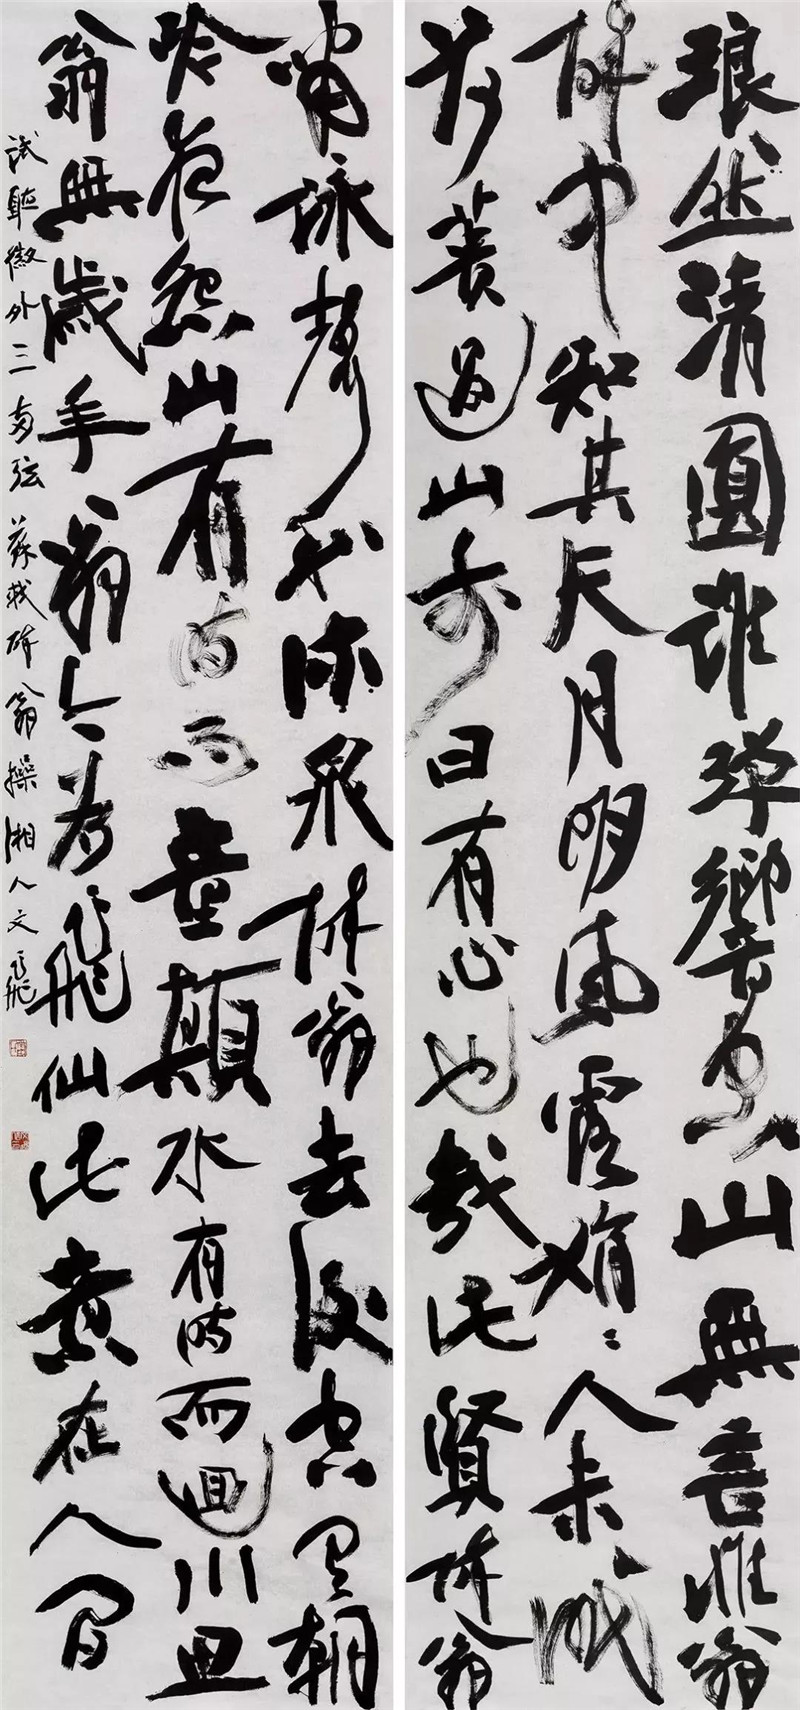 琅然清圓誰弹響空山無言惟翁
醉中知其天月明風露娟〻人未眠
荷蕢過山前曰有心也哉此賢醉翁
嘯詠聲和流泉醉翁去後空有朝
吟夜怨山有時而童顛水有時而迴川思
翁無歲年翁今為飛仙此意在人間
試聽徽外三兩弦蘇軾醉翁操湘人文飛